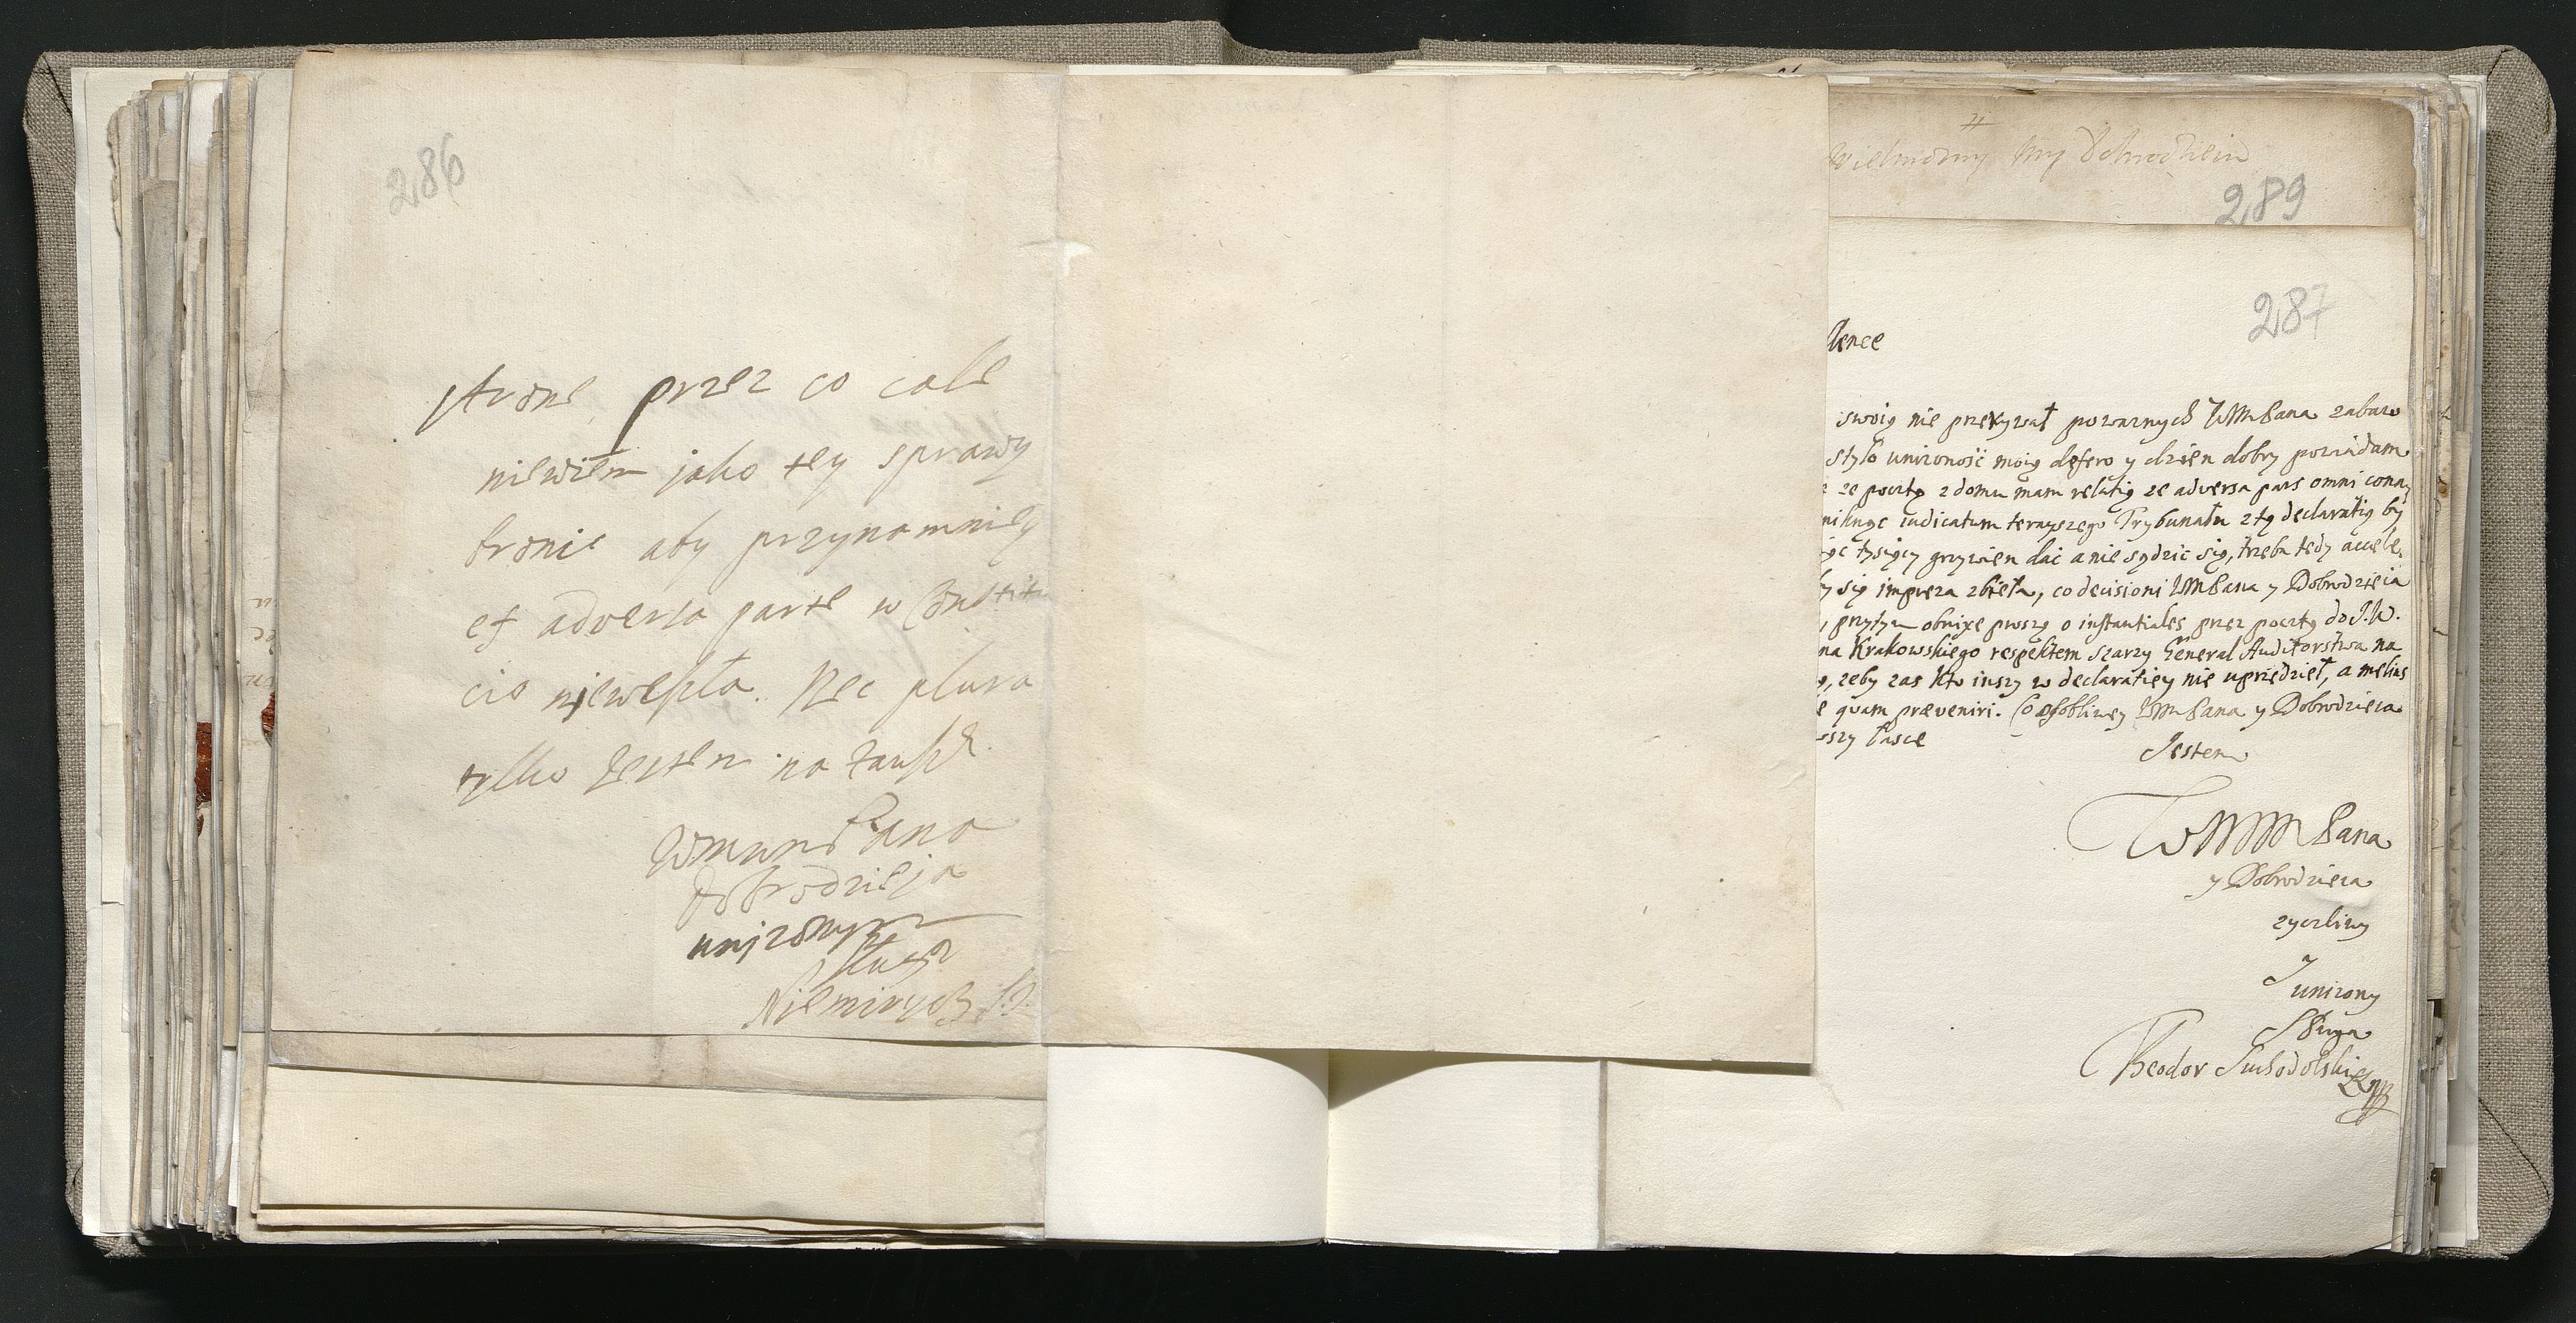 286
strone przez co cale
niewiem jako tey sprawy
bronic aby przynamniey
ex adversa parte w Constitu
cio nieweszła. Nec plura
tylko jestem na zawsze
Wmm Pana
Dobrodzieja
unizonym
sługą
Niemirycz
Wielmozny My Dobrodzieiu
289
287
lence
swoią nie przekyzał powaznych WMMPana zabaw
stylo unizoność moią defero y dzien dobry poziadam
ze pocztą z domu mam relatią ze adversa pars omni cona
nihuc iudicatum terayszego Trybunału z tą declaratią by
ięc tysięcy grzywien dać a nie sądzic się, trzeba tedy accele
y się impreza zbieła, co decisioni WMPana y Dobrodzieia
, przytym obnixe proszę o instantiales przez pocztę do J.W.
na Krakowskiego respektem szarzy General Auditorstwa na
, zeby zas kto inszy w declaratiey nie uprzedzieł, a melius
e quam præveniri. Co osobliwey WMPana y Dobrodzieia
szy Łasce
Jestem
WMM Pana
y Dobrodzieia
zyczliwy
I unizony
Sługa
Theodor Suchodolski